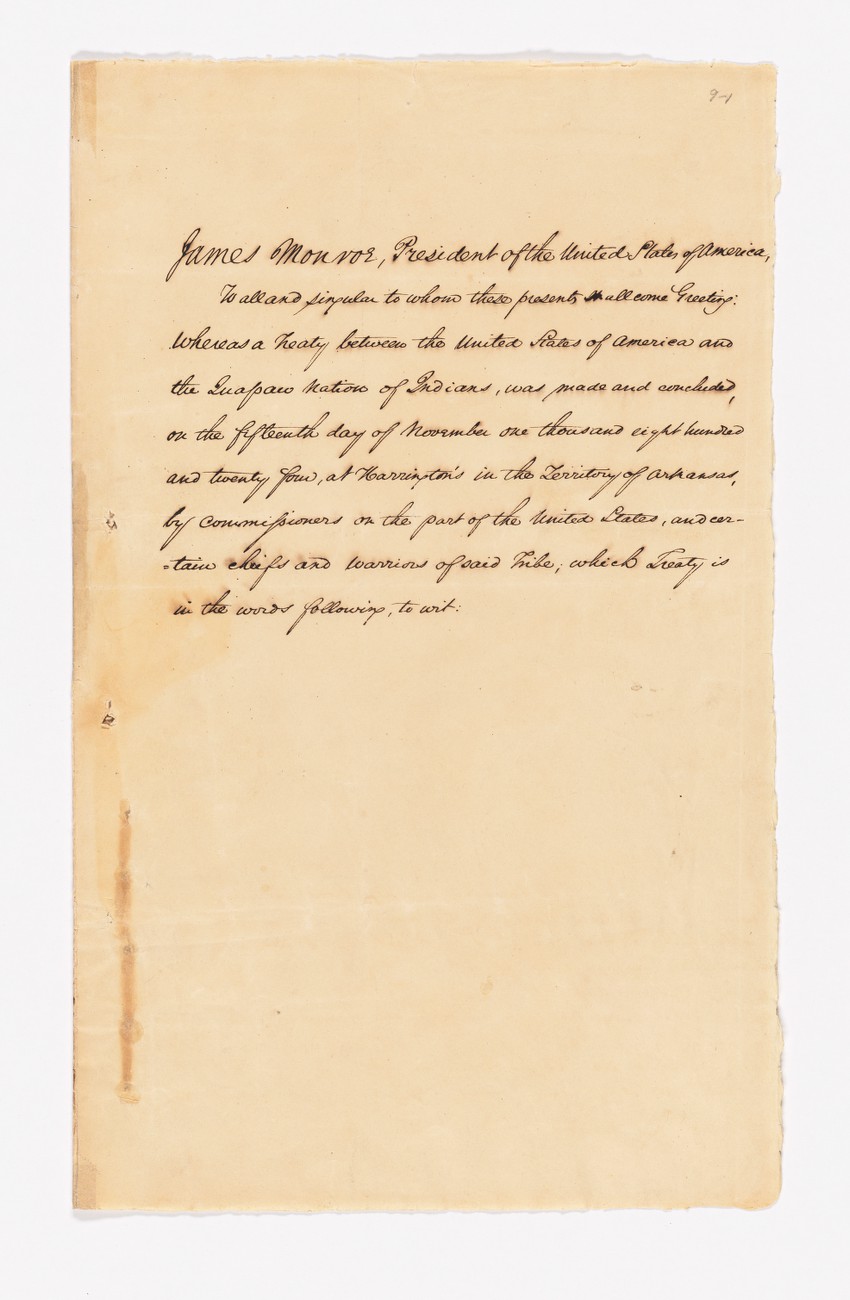 9-1
James Monroe, President of the United States of America,
To all and singular to whom these presents shall come Greeting:
Whereas a Treaty between the United States of America and
the Quapaw Nation of Indians, was made and concluded,
on the fifteenth day of November one thousand eight hundred
and twenty four, at Harrington's in the Territory of Arkansas,
by Commissioners on the part of the United States, and cer-
=tain chiefs and warriors of said Tribe; which Treaty is
in the words following, to wit: